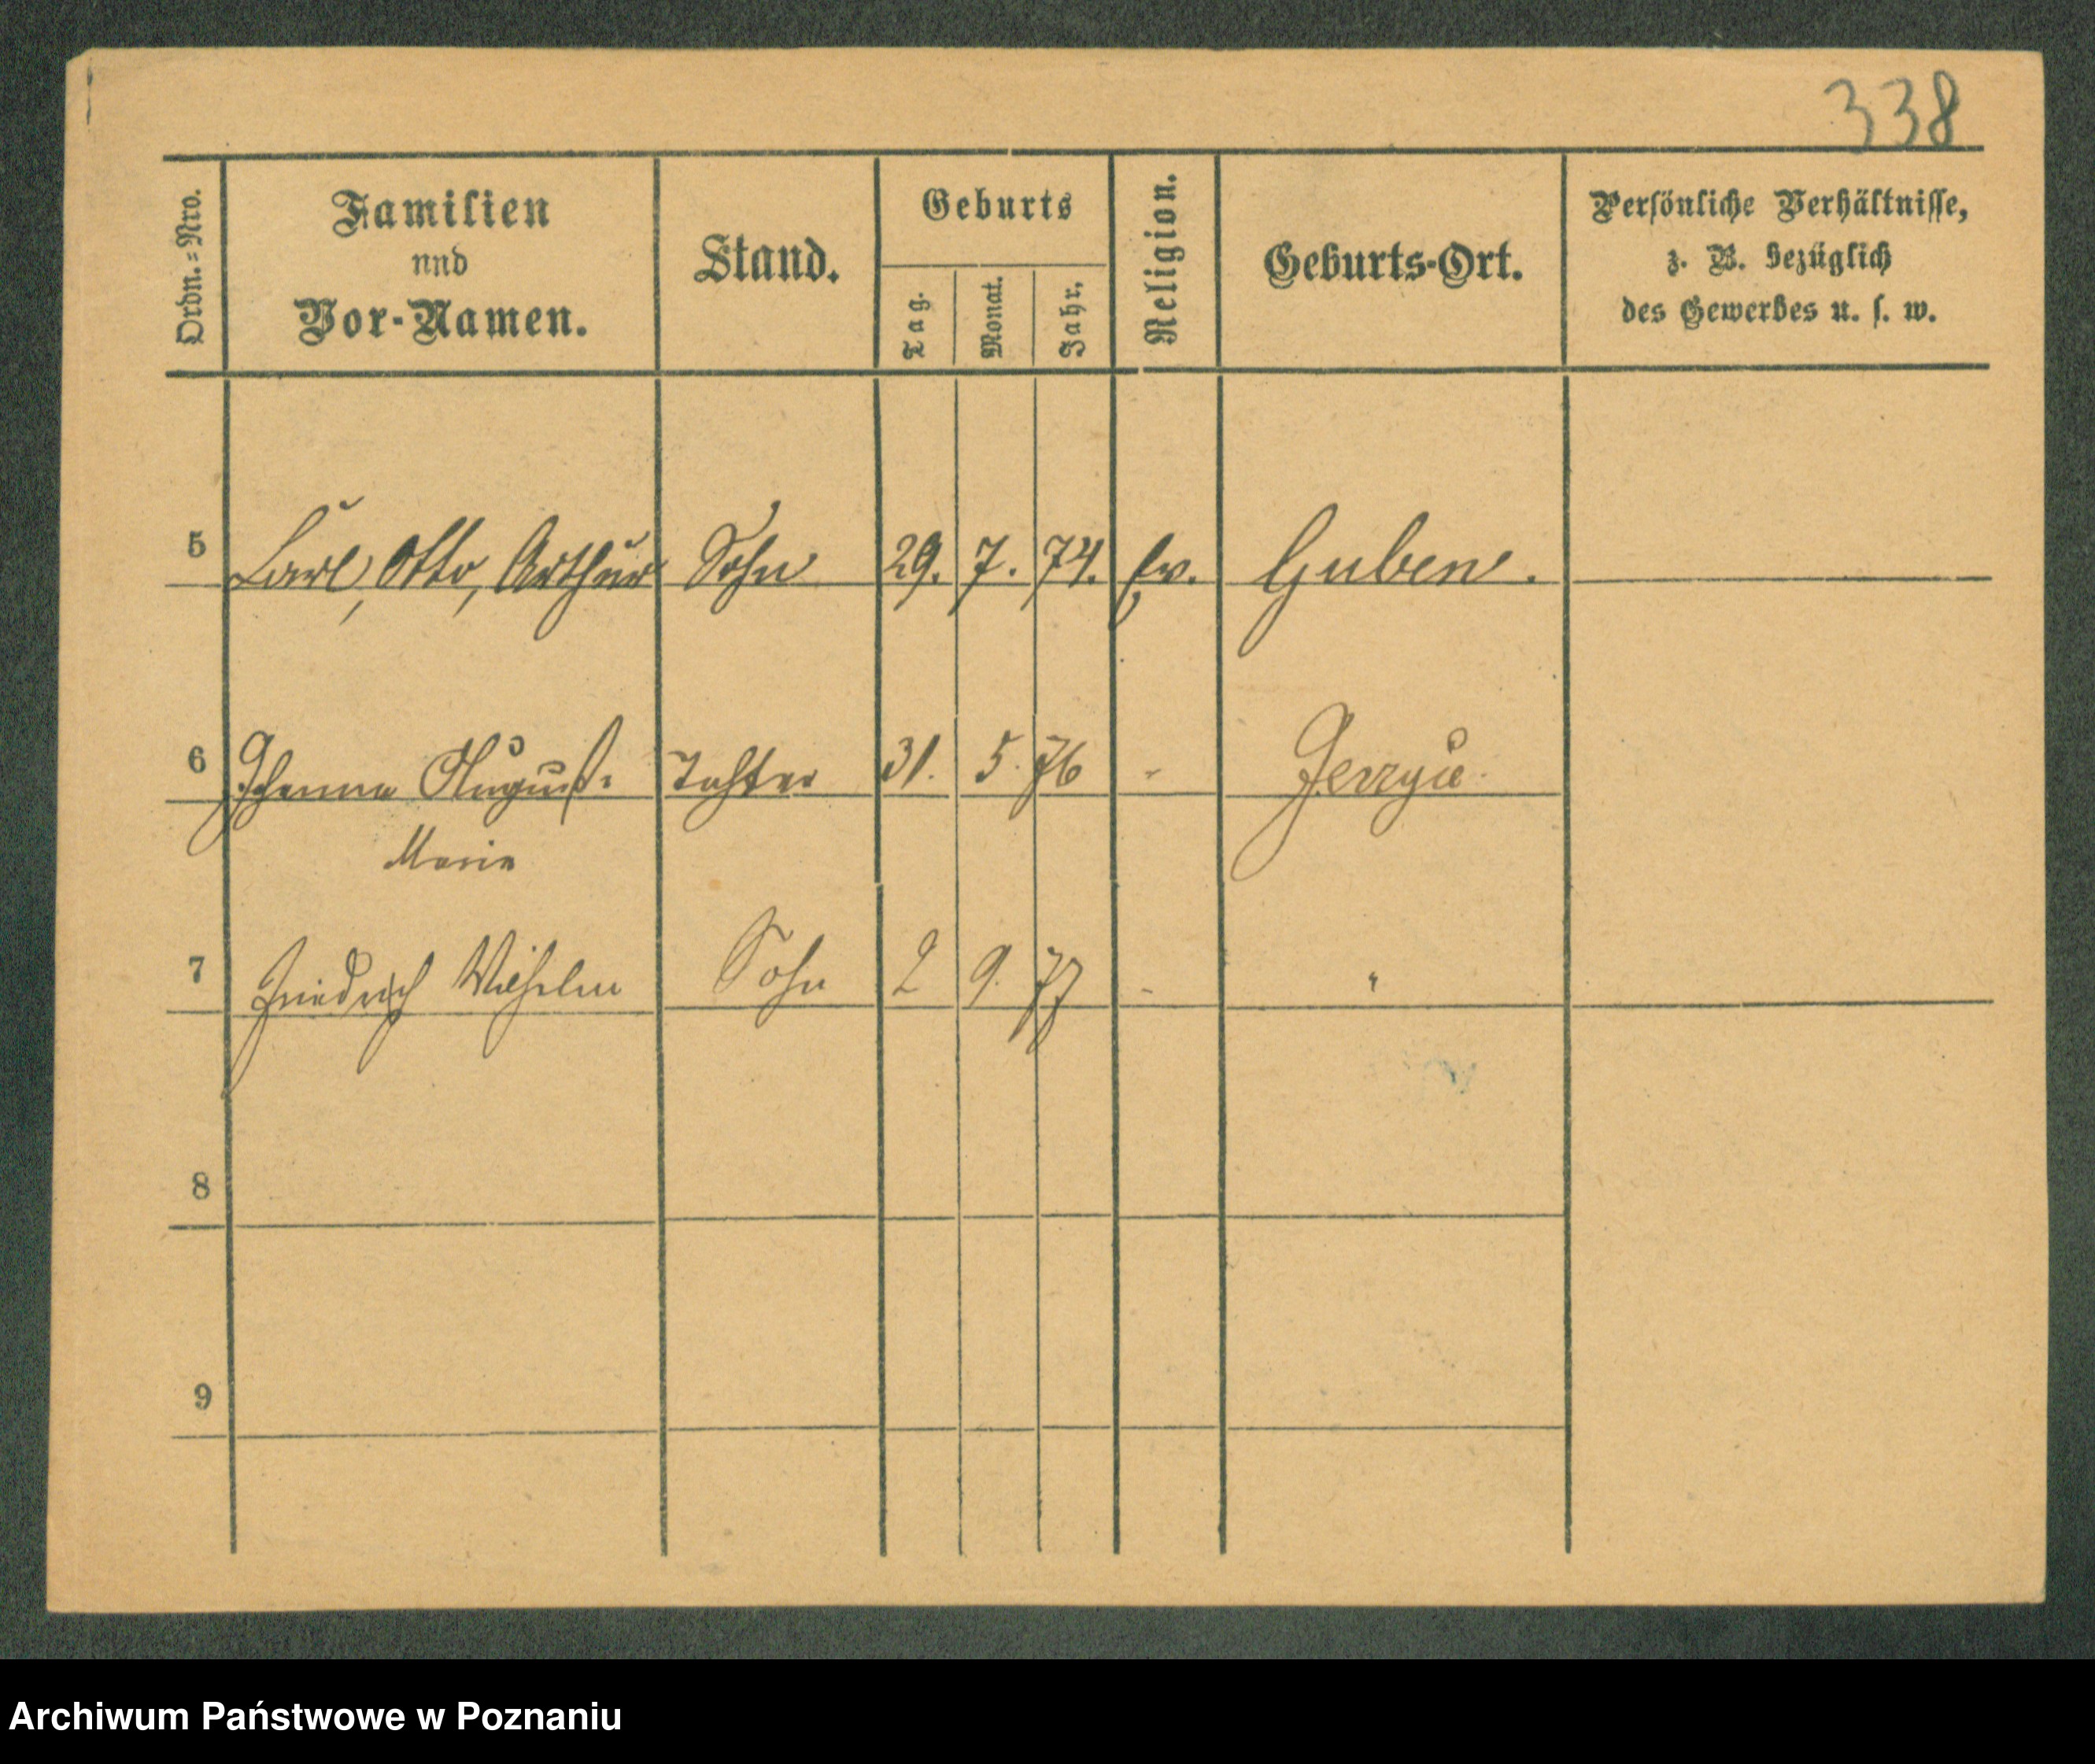 338
Ordn.=Nro.
Familien
und
Vor-Namen.
Stand.
Geburts
Tag.
Monat.
Jahr.
Religion.
Geburts-Ort.
Persönliche Verhältnisse,
z. B. bezüglich
des Gewerbes u. s. w.
5 Carl, Otto, Arthur Sohn 29. 7. 74. Ev. Guben.
6 August. Tochter 31. 5. 76 "
Marie
7 Friedrich Wilhelm Sohn 2 9. 77 " "
8
9
Archiwum Państwowe w Poznaniu